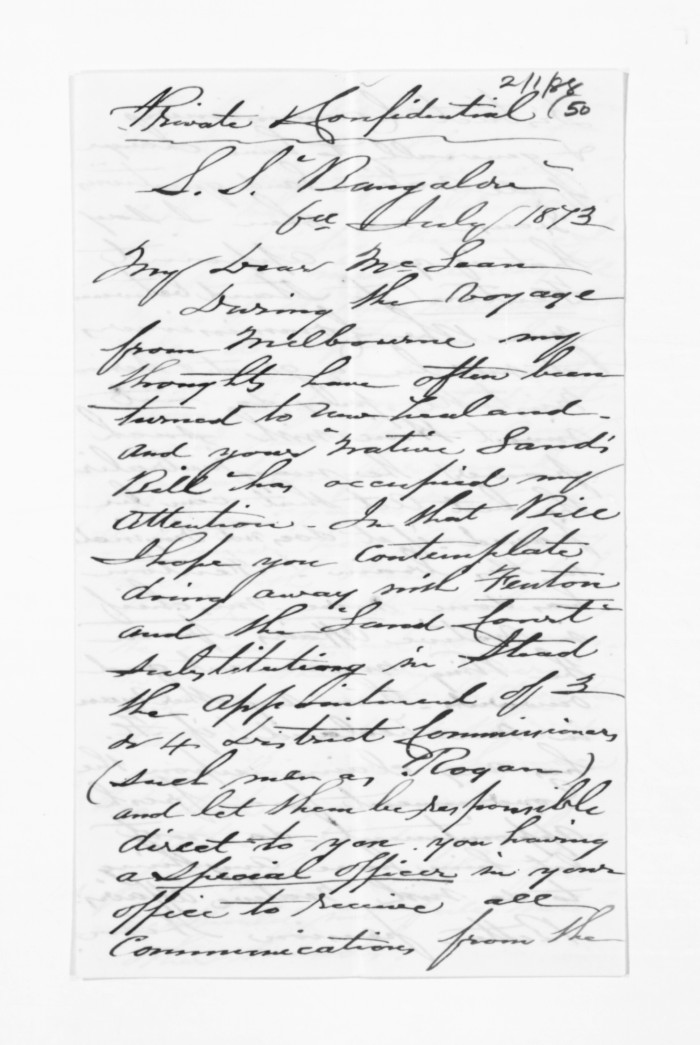 2/1/88
Private & Confidential (50
S. S. "Bangalore"
6th July 1873
My Dear McLean
During the voyage
from Melbourne my
thoughts have often been
turned to New Zealand -
and your "Native Lands
Bill" has occupied my
attention - In that Bill
I hope you contemplate
doing away with Fenton
and the "Land Court"
substituting in Stead
the appointment of 3
or 4 District Commissioners
(such men as Rogan)
and let them be responsible
direct to you. you having
a Special Officer in your
office to receive all
Communications from the